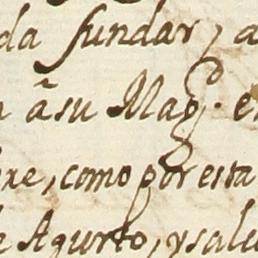 da fundar, a
â su Mag^d. e
como por esta
Agurto, y sale